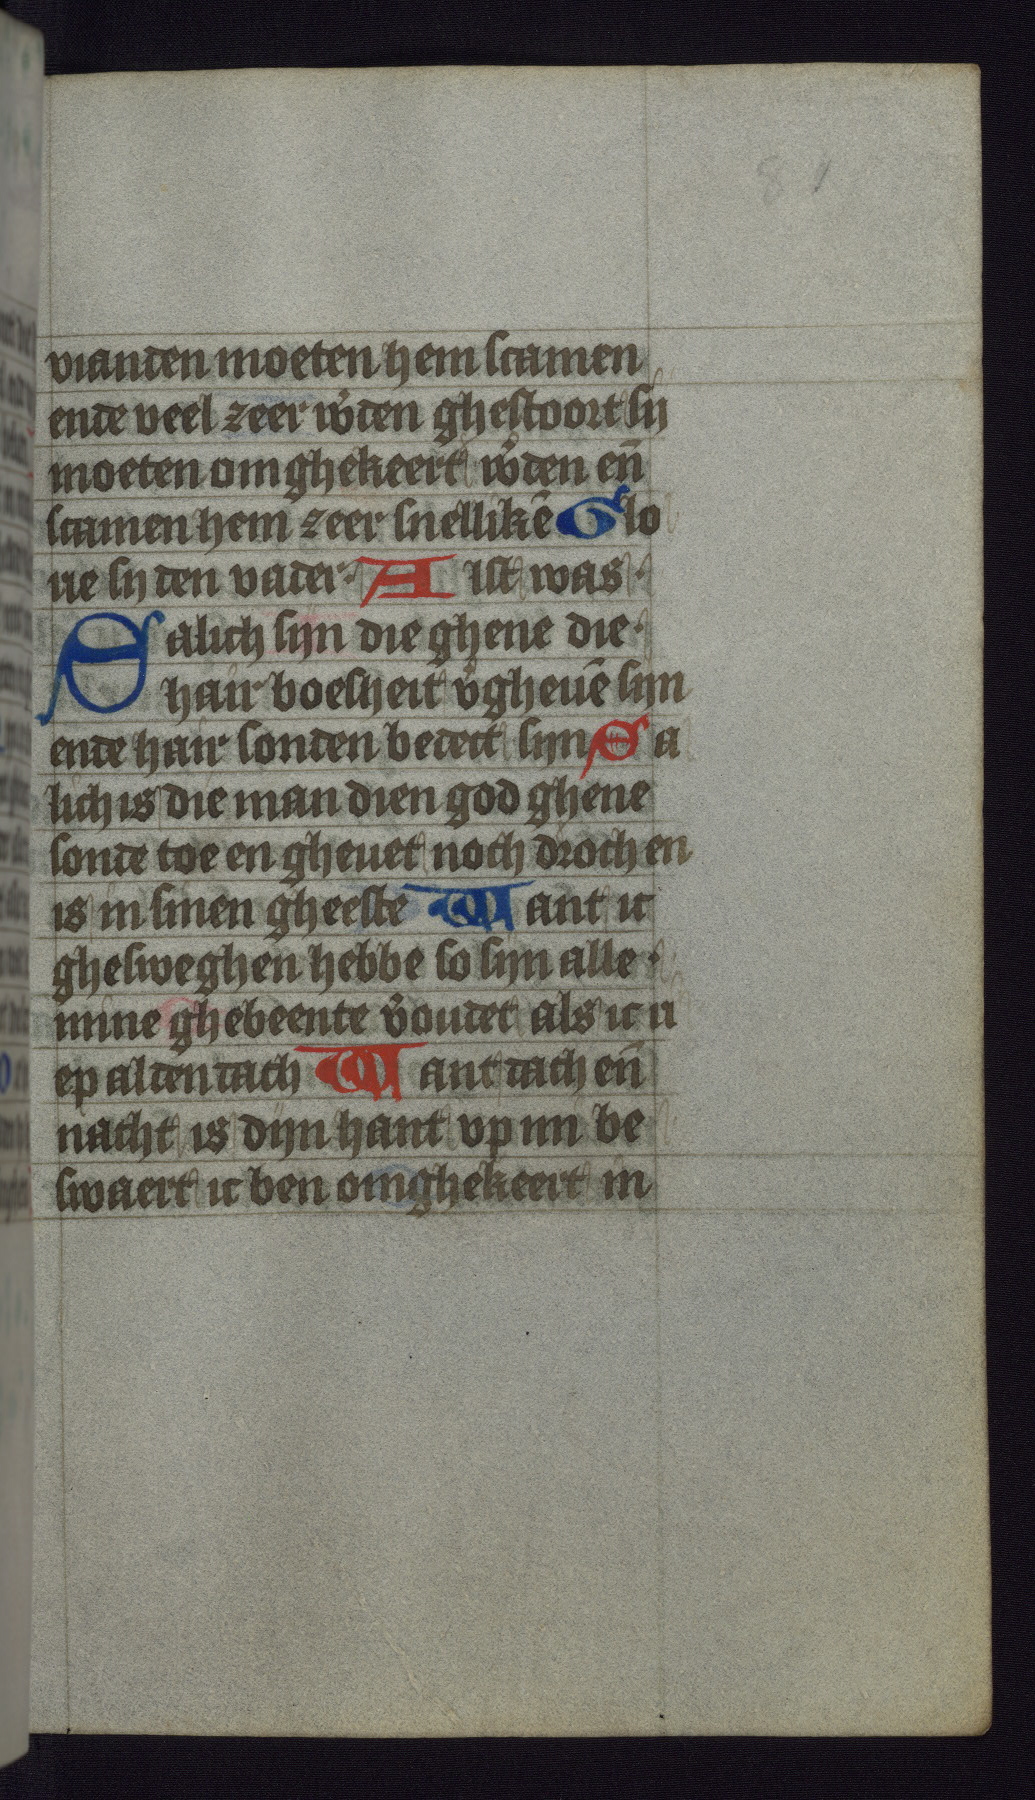 81
vianden moeten hem scamen
ende veel zeer w̉den ghestoort sy
moeten omghekeert w̉den en̄
scamen hem zeer snellikē Glo
rie sy den vader· Alst was·
Salich sijn die ghene die·
hair boesheit v̉gheuē sijn
ende hair sonden bedect sijn Sa
lich is die man dien god ghene
sonde toe en gheuet noch droch en
is in sinen gheeste Want ic
ghesweghen hebbe so sijn alle·
mine ghebeente v̉oudet als ic ri
ep alden dach Want dach en̄
nacht is dijn hant vp mi be
swaert ic ben omghekeert in